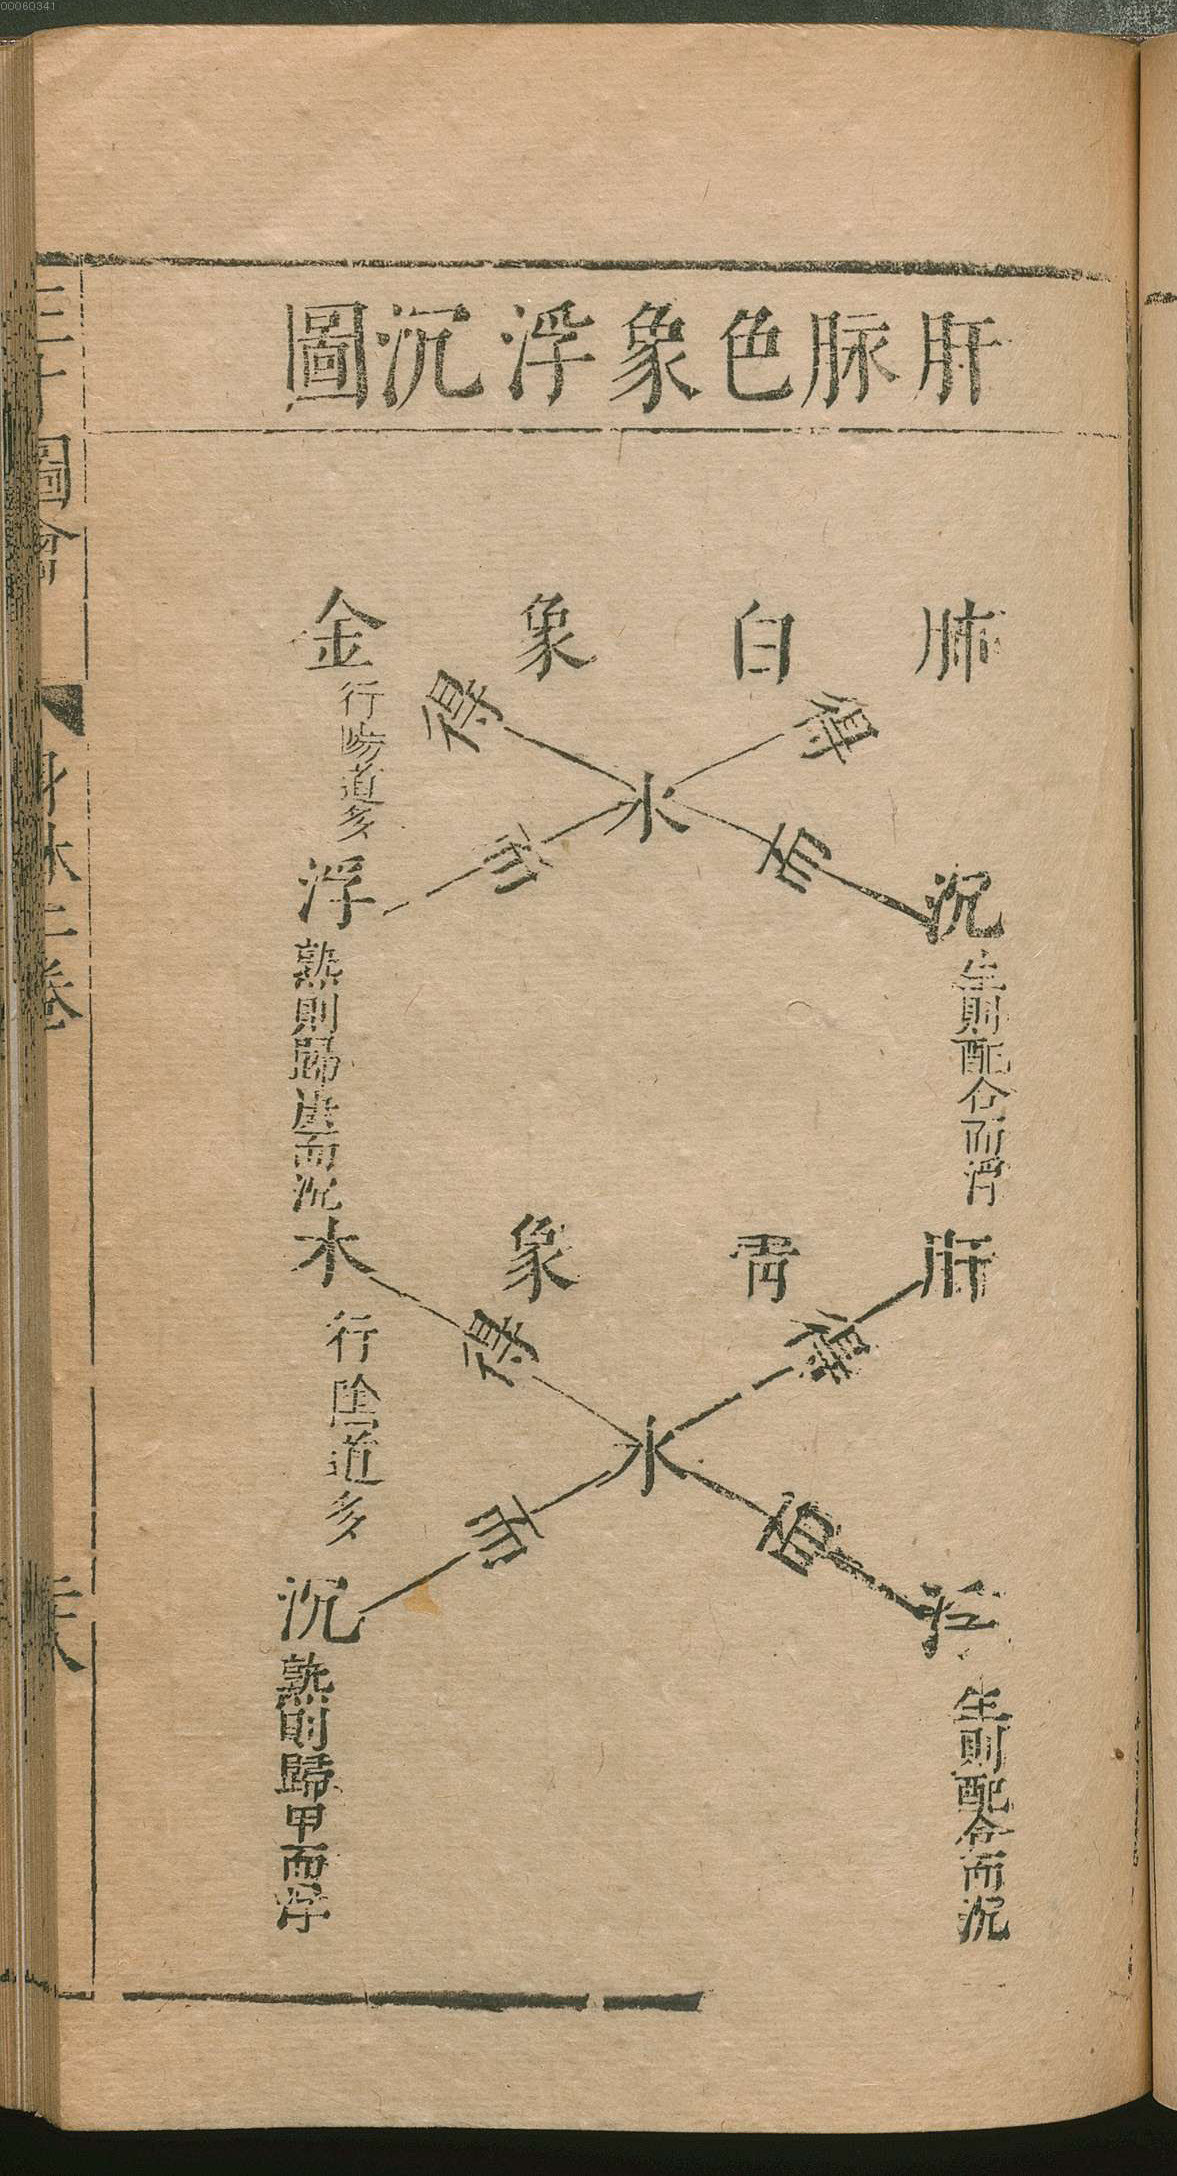 00060341
肝脉色象浮沉圖
肺白象金
行陽道多
得得
水
而而
沉浮
生則配合而浮
熟則歸辛而沉
肝青象木
行陰道多
得得
水
而而
浮沉
生則配合而沉
熟則歸甲而浮
三才圖會
身體二卷